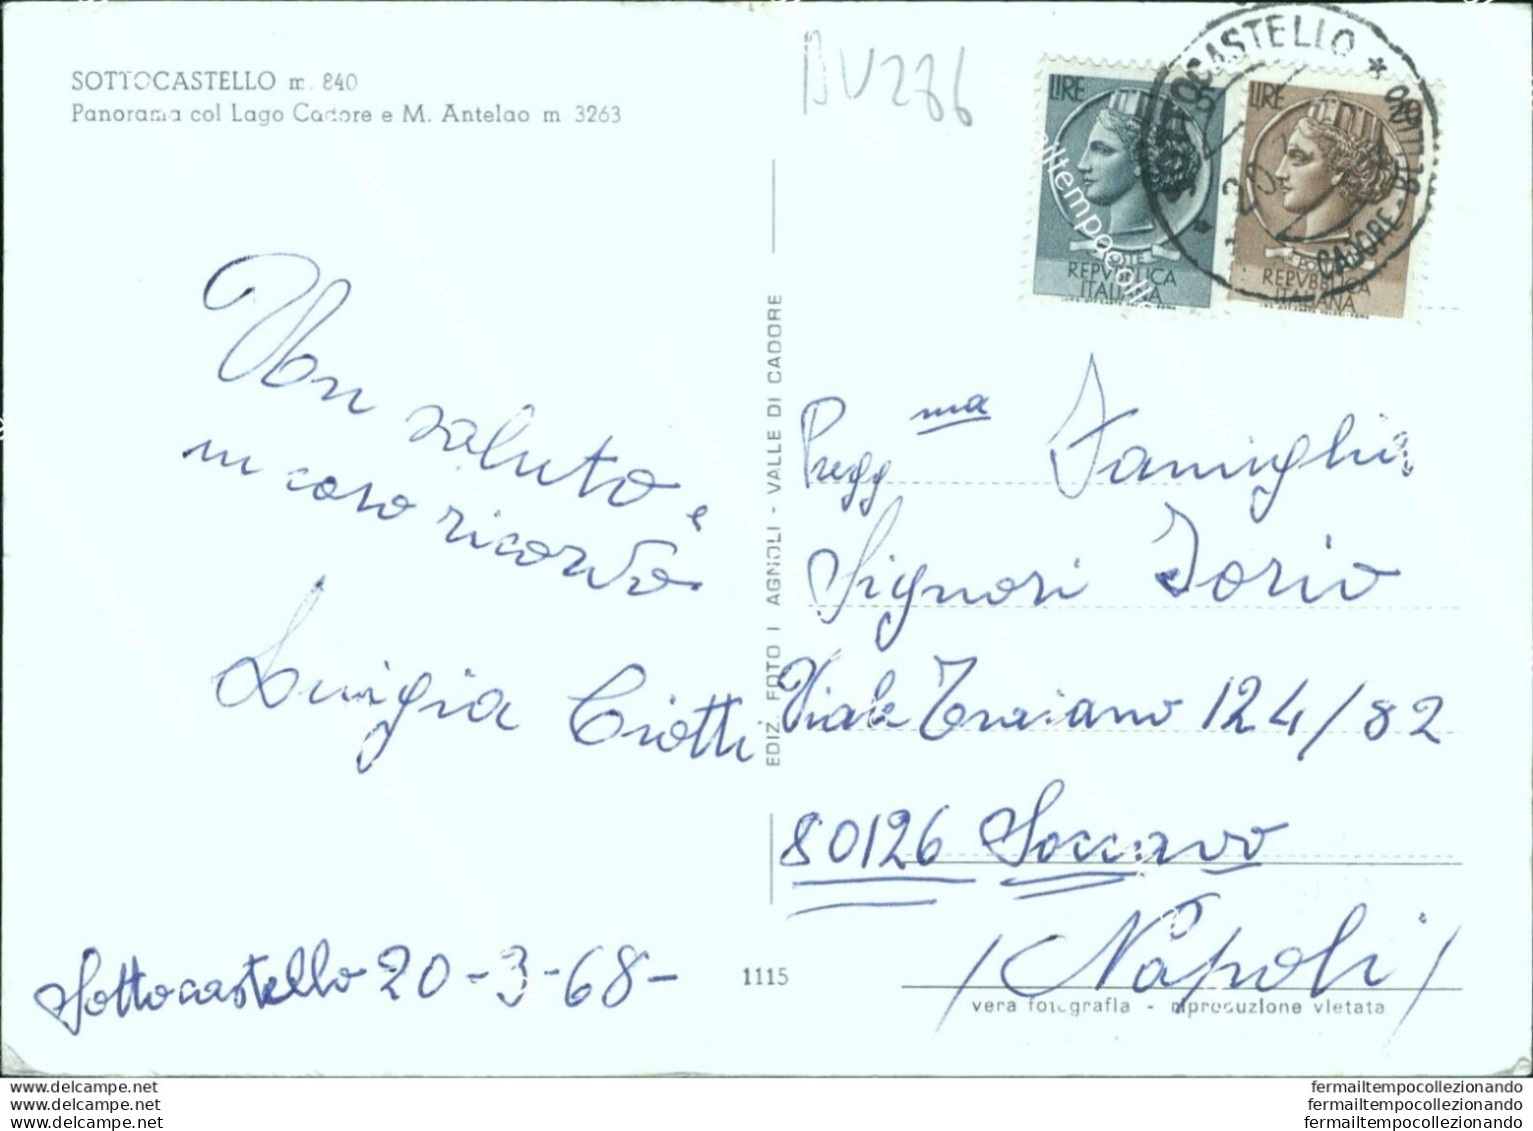 SOTTOCASTELLO m. 840
Panorama col Lago Cadore e M. Antelao m 3263
BV286
LIRE
REPVBBLICA
ITALIANA
LIRE
REPVBBLICA
ITALIANA
SOTTOCASTELLO *
CADORE - BELLUNO
20
Un saluto e
un caro ricordo
Luigia Ciotti
Sottocastello 20-3-68-
EDIZ. FOTO I AGNOLI - VALLE DI CADORE
1115
Pregg ma Famiglia
Signori Iorio
Viale Traiano 124/82
80126 Soccavo
(Napoli)
vera fotografia - riproduzione vietata
www.delcampe.net
www.delcampe.net
www.delcampe.net
fermailtempocollezionando
fermailtempocollezionando
fermailtempocollezionando